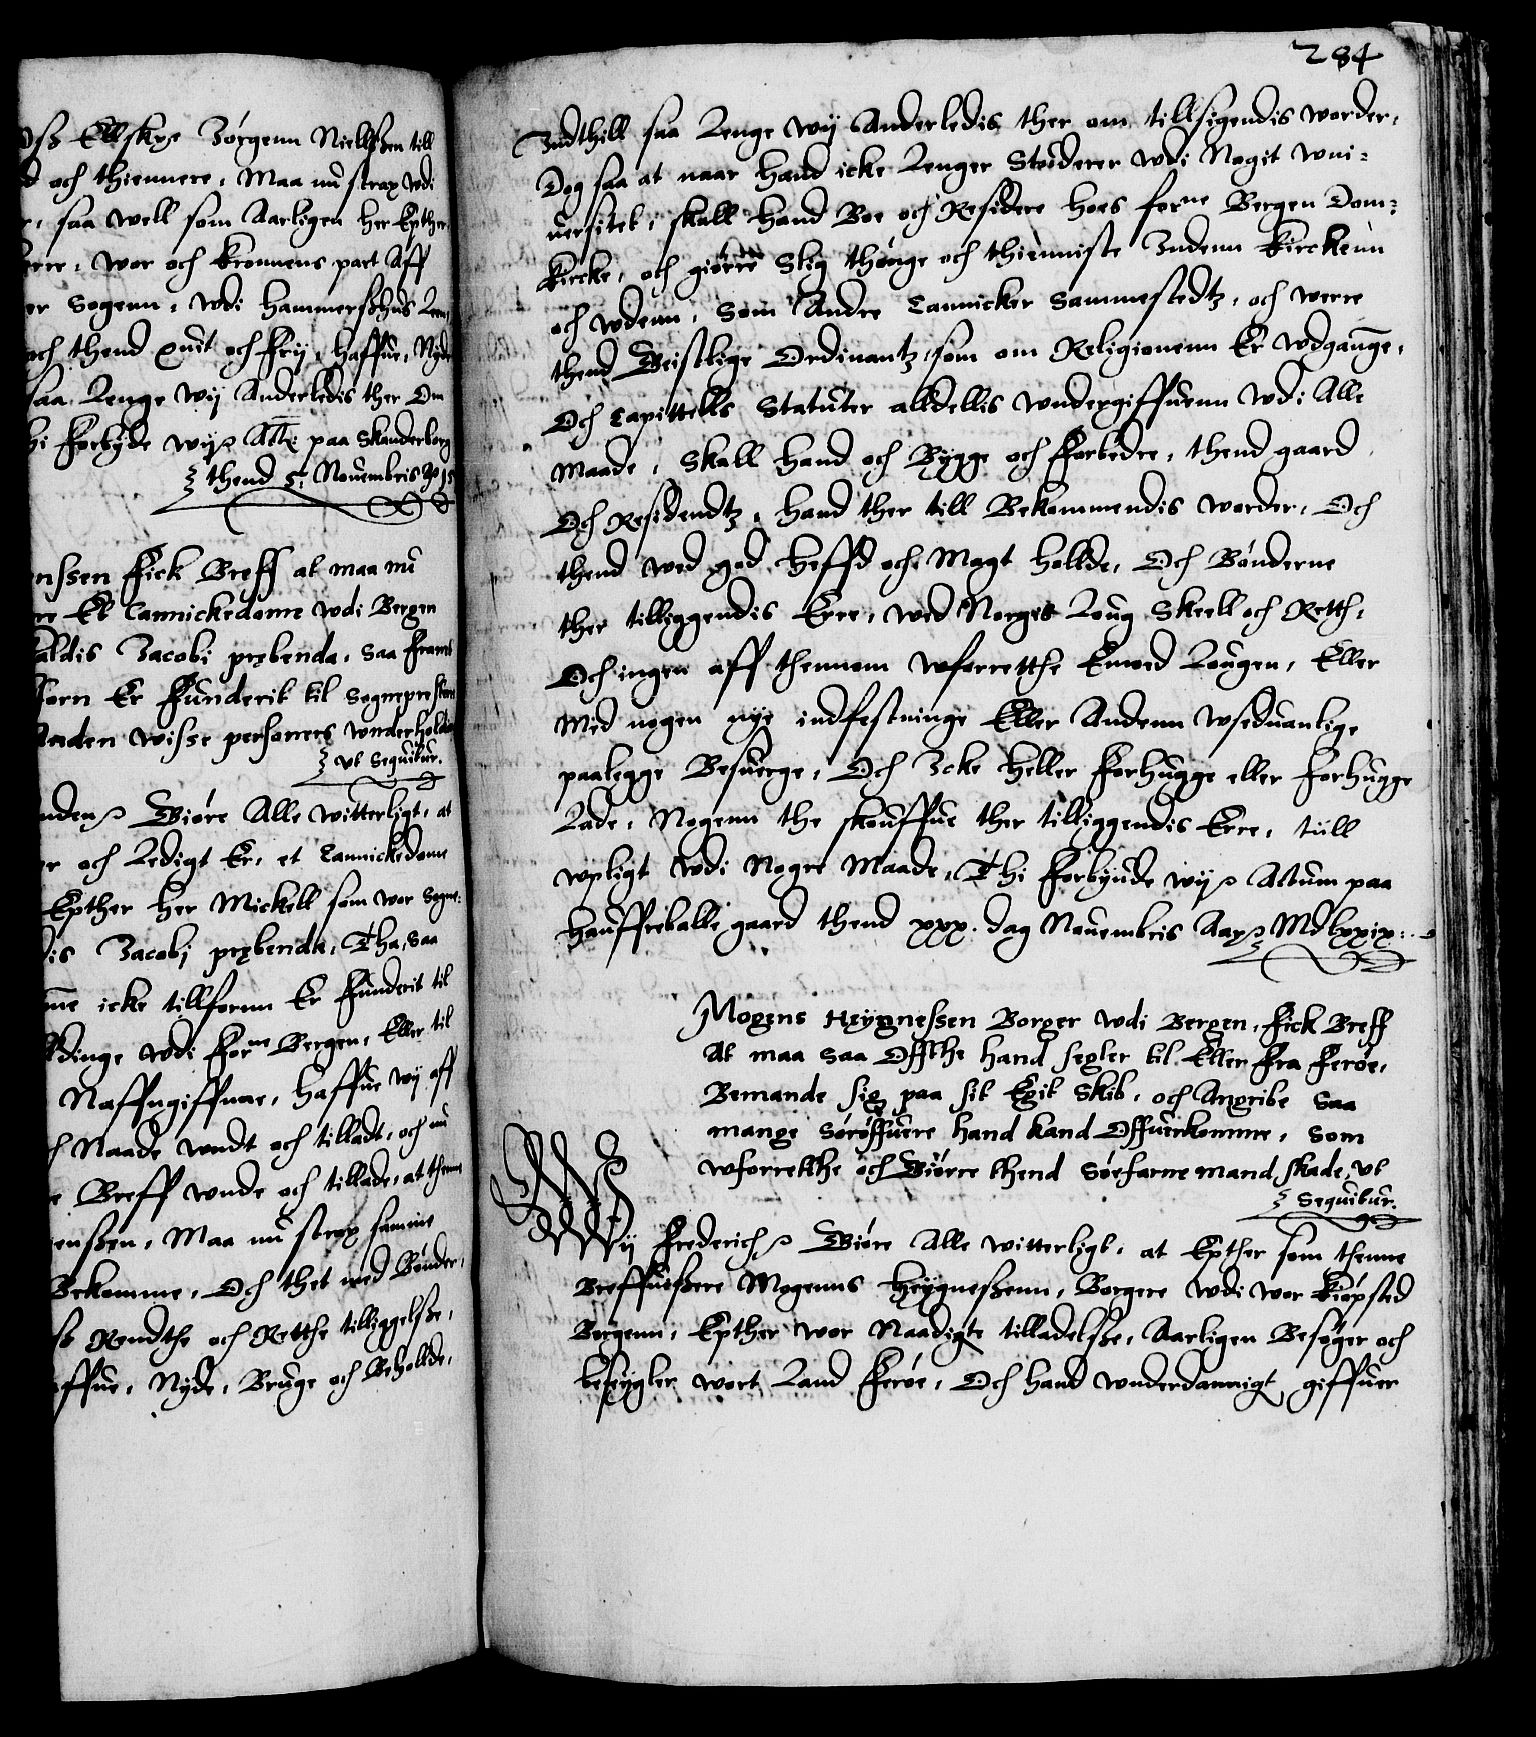 oss Ellskye Jörgenn Niellssen till
d och thiennere, Maa nu strax wdi
saa well som Aarligen her Epther
wor och kronnens part Aff
er Sogenn, wdi Hammersshus Leen
och thend quit och frij, haffue, Nyde
saa Lenge wij Anderledis ther Om
hi forbyde wij paa Skanderborg
thend 5. Nouembris Ao 15
nssen fick Breff at maa nu
re Et Cannickedome wdi Bergen
aldis Jacobi præbenda, saa framt
forn Er funderit til Sogneprestens
Anden wisse personers wnderholding
vt Sequitur.
nden Giöre Alle witterligt, at
er och Ledigt Er, et Cannickedome
Epther Her Mickell som wor Sogne-
dis Jacobj præbenda, Tha, saa
me icke tillfornn Er funderit til
ldinge wdi forne Bergen, Eller til
Naffngiffne, haffue wij aff
h Naade wndt och tilladt, och nu
e Breff wnde och tillade, at thenne
enssen, Maa nu strax samme
Bekomme, Och thet med Bönder,
ss Rendthe och Retthe tilliggelsse,
affue, Nyde, Bruge och Beholde,
284
Indthill saa Lenge wij Anderledis ther om tillsigendis worder,
Dog saa at naar Hand icke Lenger Studerer wdi Nogit wni-
uersitet, skall Hand Boe och Residere hoes forne Bergen Dom-
kircke, och giörre Slig thönge och thienniste Indenn kirckenn
och wdenn, Som Andre Cannicker Sammestedtz, och werre
thend Geistlige Ordinantz, som om Religionenn Er wdgangne,
Och Capittells Statuter alldellis wndergiffuenn wdi Alle
Maade, Skall Hand och Bygge och forbedre, thend gaard
Och Residendtz, Hand ther till Bekommendis worder, Och
thend wed god Heffd och Magt hollde, Och Bönderne
ther tilliggendis Erre, wed Norges Loug Skeell och Retth,
Och ingen aff thennom wforretthe Emod Lougen, Eller
Med nogen nye indfestninge Eller Andenn wseduanlige
paalegge Besuerge, Och Icke heller forhugge eller forhugge
Lade, Nogenn the skouffue ther tilliggendis Erre, till
wpligt wdi Nogre Maade, Thi forbyude wij Actum paa
Hauffreballe gaard thend xxx. dag Nouembris Aar Mdlxxix.
Mogens Heygnessen Borger wdi Bergen, fick Breff
At maa saa Offthe hand segler til Eller fra Feröe,
Bemande sig paa sit Egit Skib, och Angribe saa
mange Söröffuere hand kand Offuerkomme, som
wforretthe och Giörre thend Söefarne mand skade, vt
Sequitur.
Wij Frederich Giöre Alle witterligt, at Epther som thenne
Breffuissere Mogenns Heygnessenn, Borgere wdi wor kiöpsted
Bergenn, Epther wor Naadigte tilladelsse, Aarligen Besöger och
beseygler wort Land Feröe, Och hand wnderdannigt giffuer